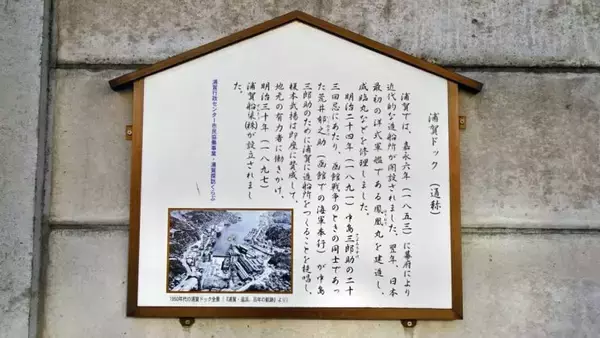 浦賀ドック（通称）
浦賀では、嘉永六年（一八五三）に幕府により
近代的な造船所が開設されました。翌年、日本
最初の洋式軍艦である鳳凰丸を建造し、
咸臨丸などを修理しました。
明治二十四年（一八九一）中島三郎助の二十
三回忌にあたり、函館戦争のときの同士であっ
た荒井郁之助（函館での海軍奉行）が中島
三郎助のために浦賀に造船所をつくることを提唱し、
榎本武揚は即座に賛成して、
地元の有力者に働きかけ、
明治三十年（一八九七）
浦賀船渠㈱が設立されまし
た。
浦賀行政センター市民協働事業・浦賀探訪くらぶ
1950年代の浦賀ドック全景（『浦賀・追浜、百年の航跡』より）